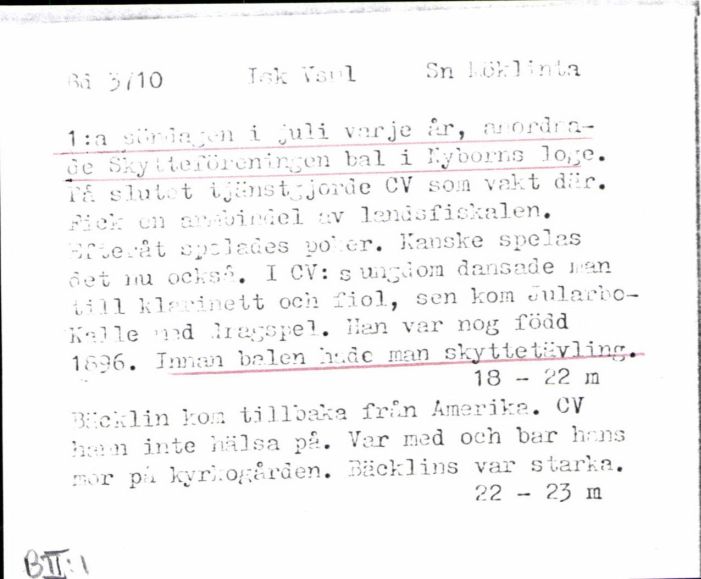 Bd 3/10 Isk Vsul Sn Löklinta
1:a söndagen i juli varje år, anordna-
de Skytteföreningen bal i Nyborns loge.
På slutet tjänstgjorde CV som vakt där.
Fick en armbindel av landsfiskalen.
Efteråt spelades poker. Kanske spelas
det nu också. I CV:s ungdom dansade man
till klarinett och fiol, sen kom Jularbo-
Kalle med dragspel. Han var nog född
1896. Innan balen hade man skyttetävling.
18 - 22 m
Bäcklin kom tillbaka från Amerika. CV
hann inte hälsa på. Var med och bar hans
mor på kyrkogården. Bäcklins var starka.
22 - 23 m
BII:1